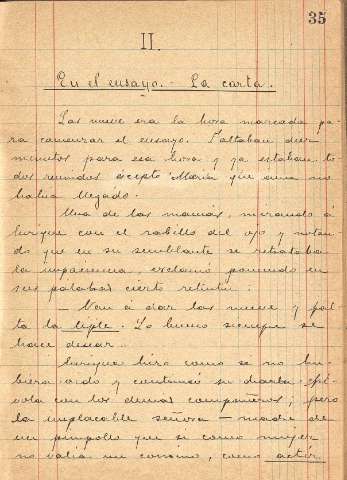 35
II.
En el ensayo. - La carta.
Las nueve era la hora marcada pa-
ra comenzar el ensayo. Faltaban diez
minutos para esa hora y ya estaban to-
dos reunidos acepto María que aun no
habia llegado.
Una de las mamás, mirando á
Enrique con el rabillo del ojo y notan-
do que en su semblante se retrataba
la impaciencia, exclamó poniendo en
sus palabras cierto retintin:
— Van á dar las nueve y fal-
ta la tiple. Lo bueno siempre se
hace desear.
Enrique hizo como si no hu-
biera oido y continuó su charla frí-
vola con los demas compañeros; pero
la implacable señora — madre de
un pimpollo que si como mujer
no valia un comino, como actriz